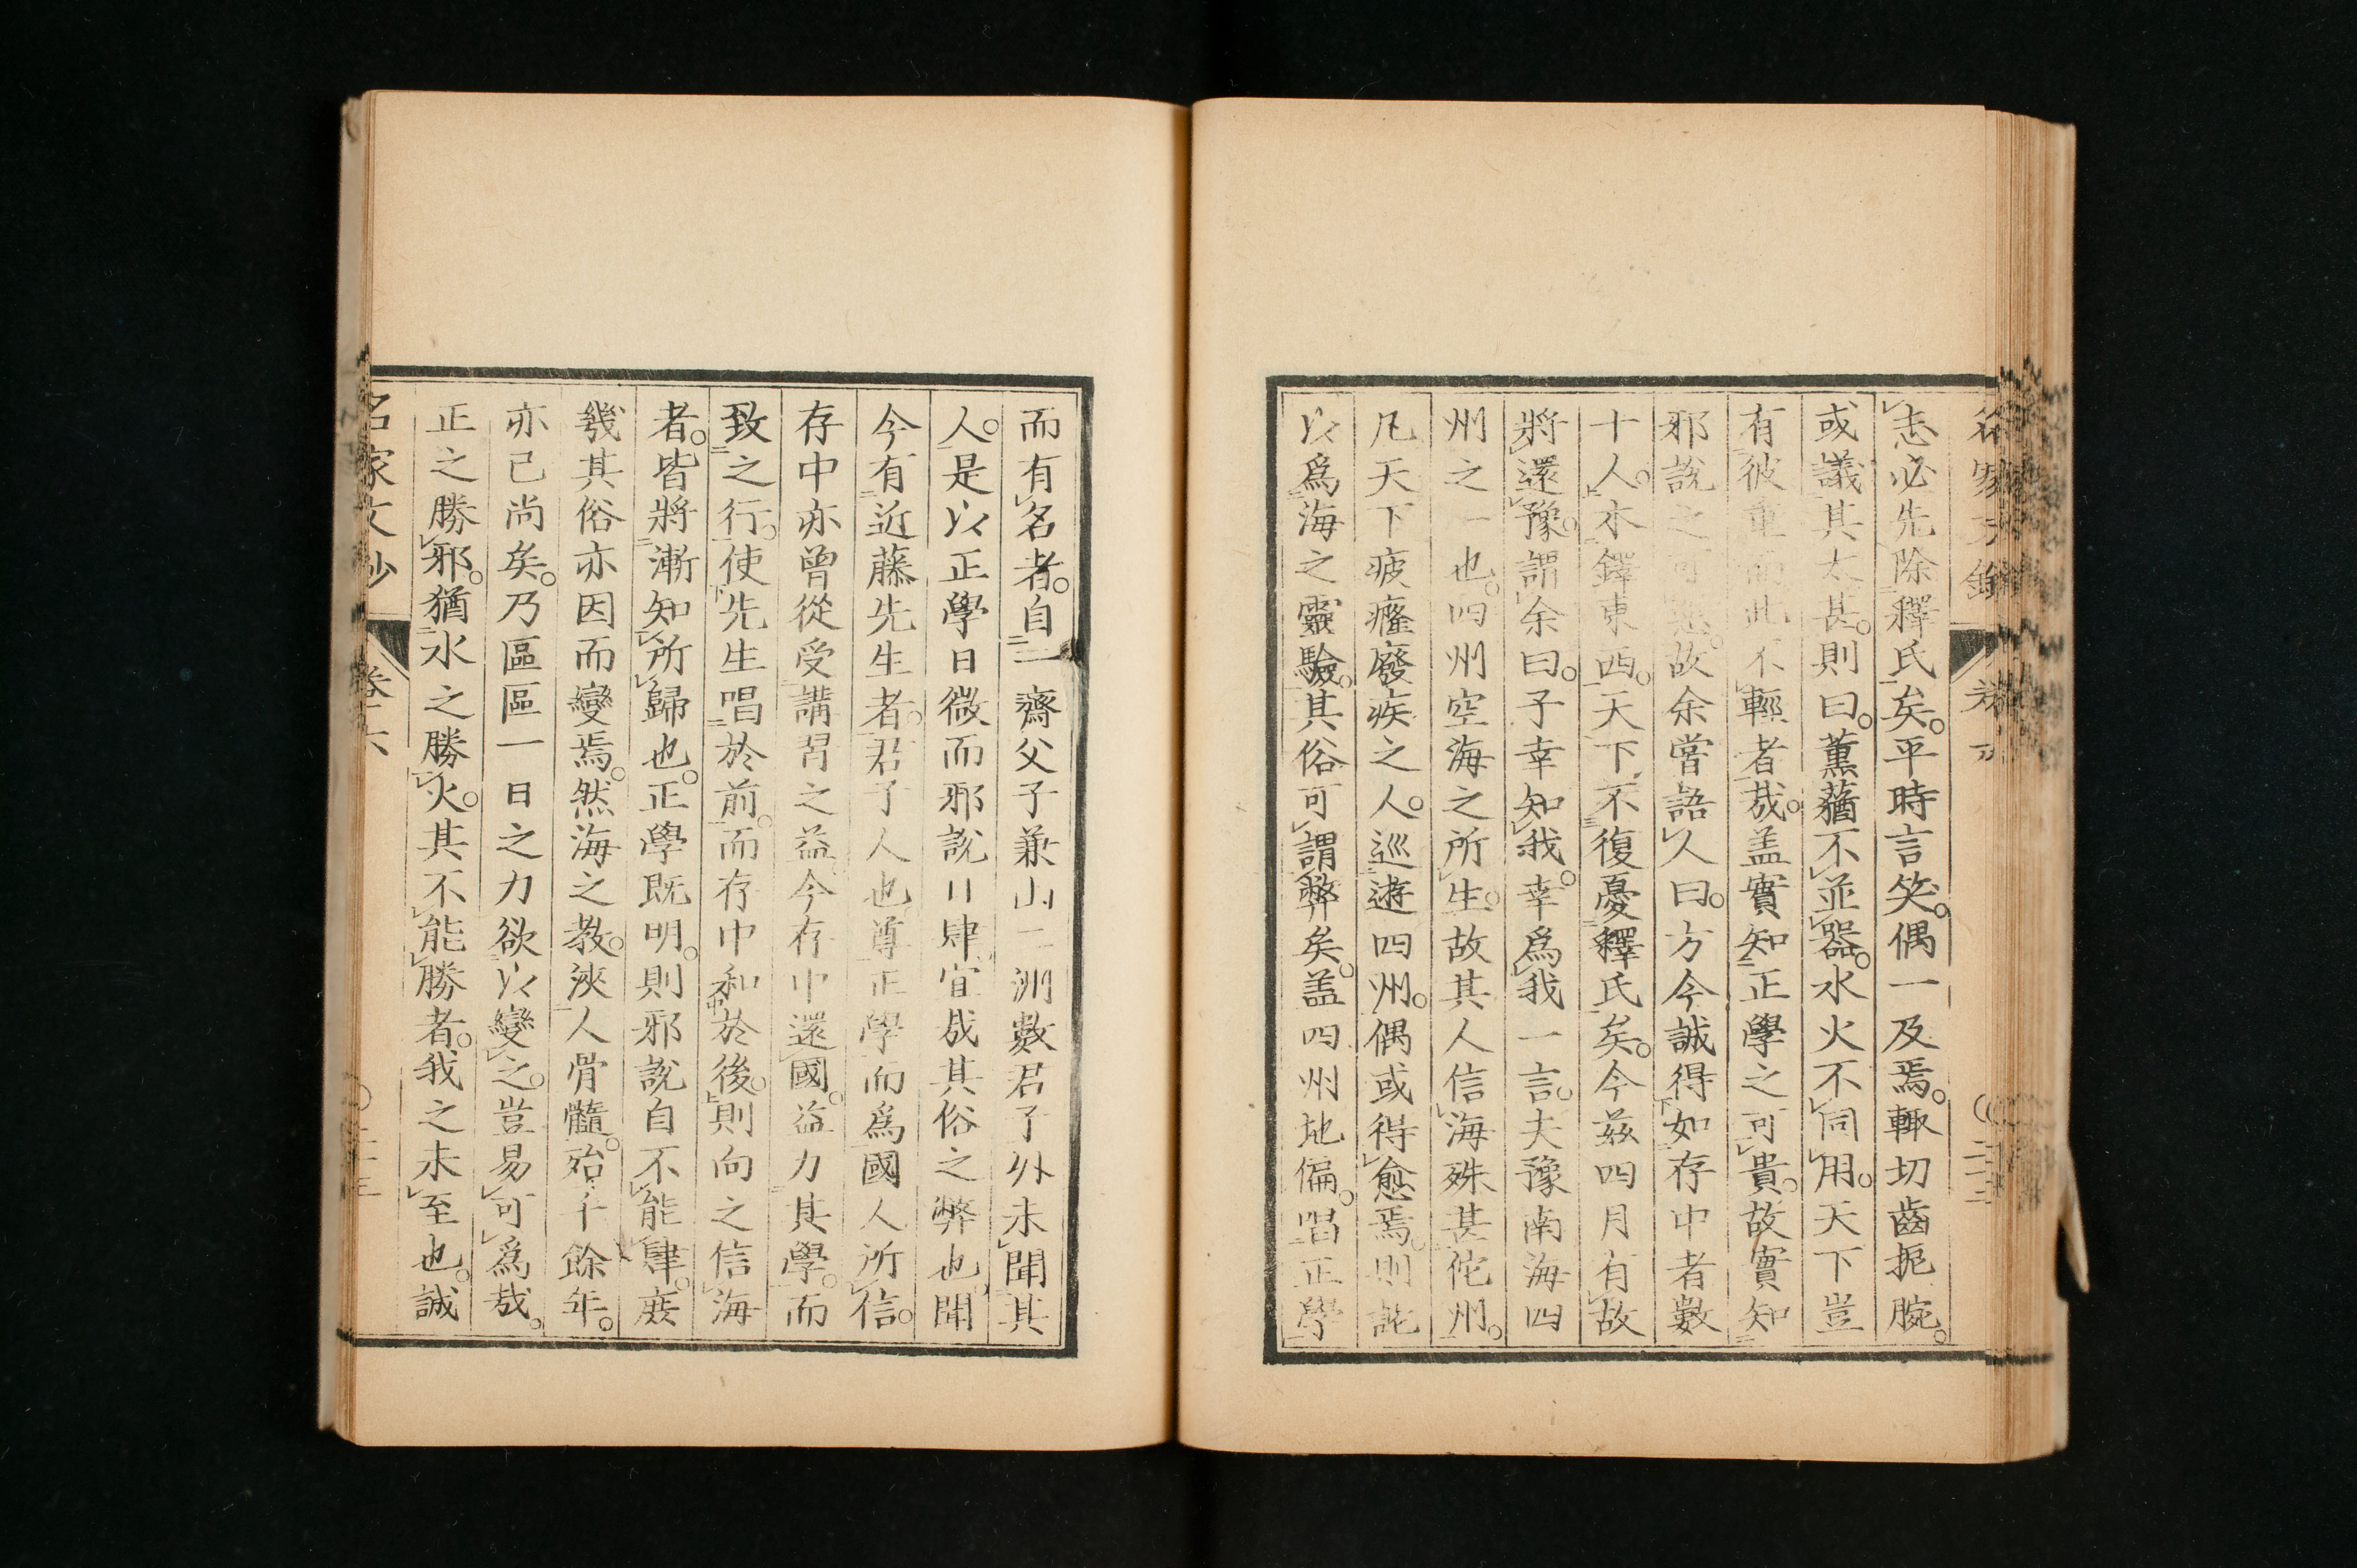 志必先除釋氏矣。平時言笑。偶一及焉。輙切齒扼腕。
或議其太甚。則曰。薰蕕不並器。水火不同用。天下豈
有彼重而此不輕者哉。盖實知正學之可貴。故實知
邪說之可惡。故余嘗語人曰。方今誠得如存中者數
十人。木鐸東西。天下不復憂釋氏矣。今茲四月有故
將還豫。謂余曰。子幸知我。幸爲我一言。夫豫南海四
州之一也。四州空海之所生。故其人信海殊甚佗州。
凡天下疲癃廢疾之人。巡遊四州。偶或得愈焉。則詑
以爲海之靈驗。其俗可謂弊矣。盖四州地偏。唱正學
而有名者。自一齋父子兼山二洲數君子外未聞其
人。是以正學日微而邪說日肆宜成其俗之弊也聞
今有近藤先生者。君子人也尊正學而爲國人所信。
存中亦曾從受講習之益今存中還國。益力其學。而
致之行。使先生唱於前。而存中和於後。則向之信海
者。皆將漸知所歸也。正學既明。則邪說自不能肆。庶
幾其俗亦因而變焉。然海之教。浹人骨髓。殆千餘年。
亦已尚矣。乃區區一日之力欲以變之。豈易可爲哉。
正之勝邪。猶水之勝火。其不能勝者。我之未至也。誠
名家文抄 卷六